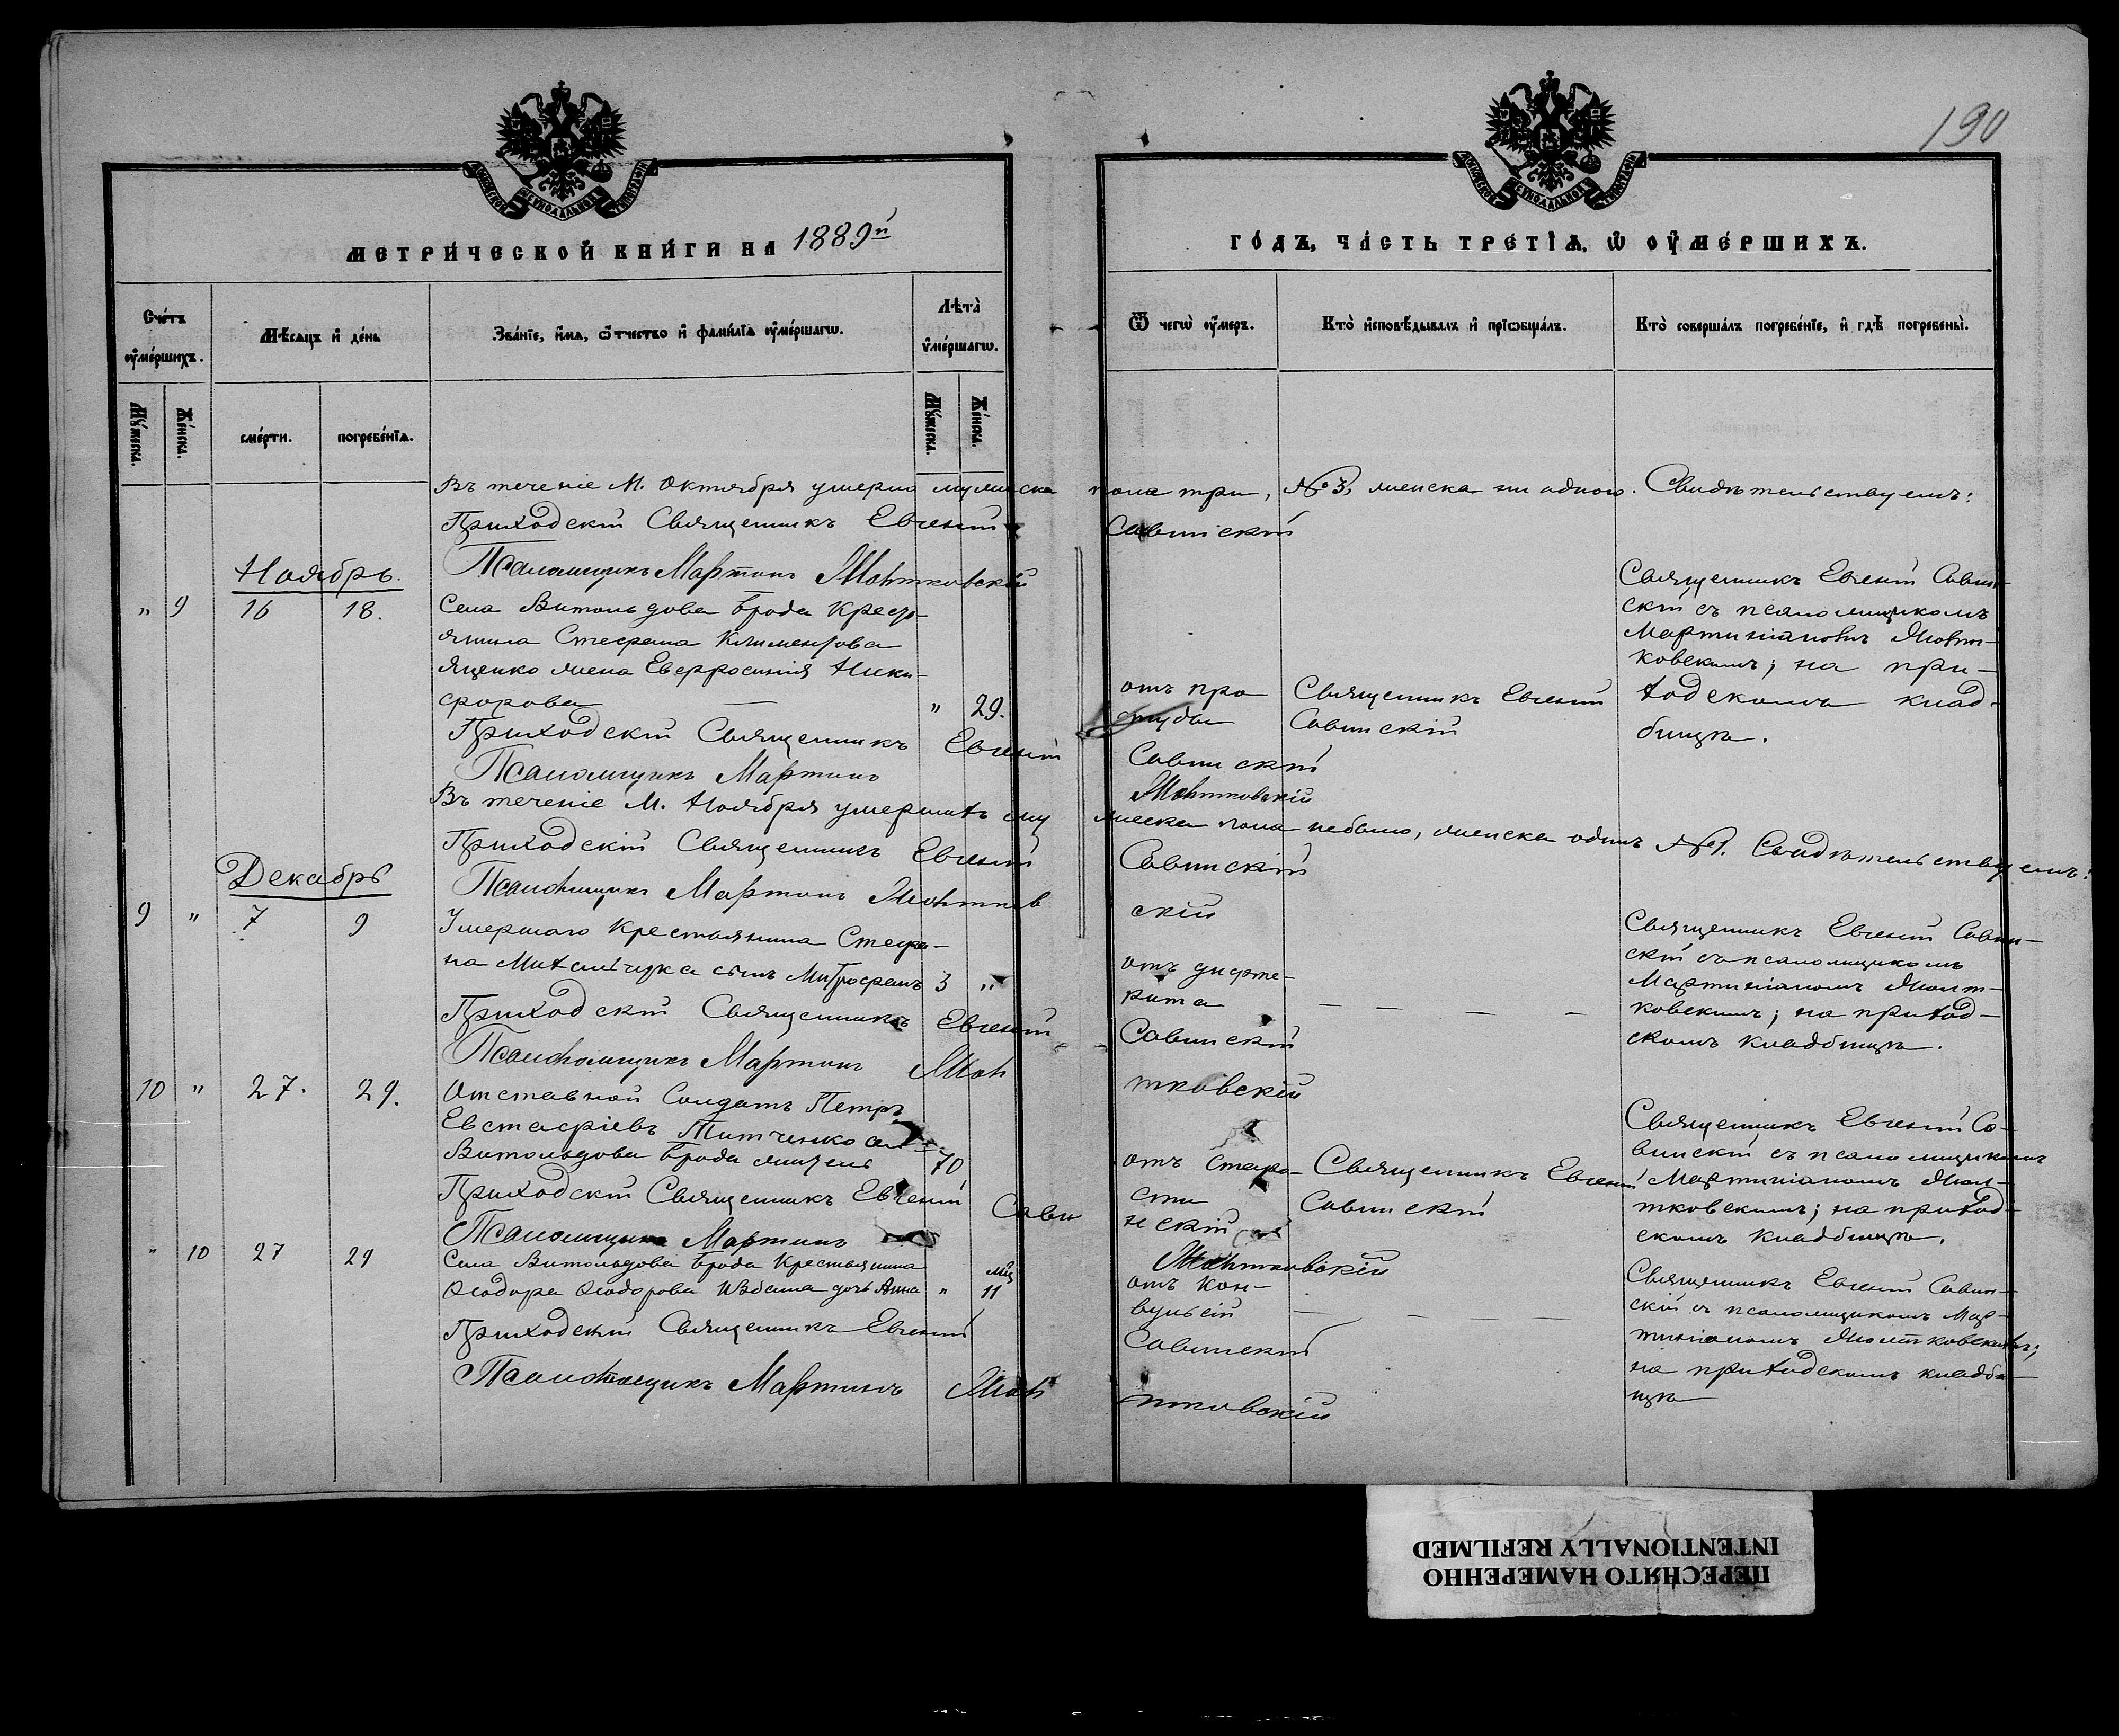 190
МЕТРИ́ЧЕСКОЙ КНИ́ГИ НА 1889й
ГО́ДЪ, ЧА́СТЬ ТРЕ́ТІѦ, Ѡ ОУ҆МЕ́РШИХЪ.
Сче́тъ оу҆ме́ршихъ.
Мѣ́сяцъ и҆ де́нь
Зва́нїе, и҆́мѧ, ѻ҆́тчество и҆ фами́лїѧ оу҆ме́ршагѡ.
Лѣ́та оу҆ме́ршагѡ.
Ѿ чегѡ̀ оу҆́меръ.
Кто̀ и҆сповѣ́дывалъ и҆ прїѡбща́лъ.
Кто̀ соверша́лъ погребе́нїе, и҆ гдѣ̀ погребены̀.
Мꙋ́жеска.
Же́нска.
сме́рти.
погребе́нїѧ.
Мꙋ́жеска.
Же́нска.
Въ теченіе М. Октября умерло мужеска пола три, № 3, женска ни одного. Свидѣтельствуемъ:
Приходскій Священникъ Евгеній Савинскій
Псаломщикъ Мартинъ
Ноябрь.
" 9 16 18.
Села Витольдова Брода Кресть-
янина Стефана Климентова
Яценко жена Евфросинія Ники-
форова — " 29.
отъ про
студы
Священникъ Евгеній
Савинскій
Священникъ Евгеній Савин-
скій съ псаломщикомъ
ковскимъ; на при-
ходскомъ клад-
бищѣ.
Приходскій Священникъ Евгеній Савинскій
Псаломщикъ Мартинъ
Въ теченіе М. Ноября умершихъ му жеска пола небыло, женска одинъ № 1. Свидѣтельствуемъ:
Приходскій Священникъ Евгеній Савинскій
Псаломщикъ Мартинъ
Декабрь
9 " 7 9
Умершаго Крестьянина Стефа-
на Михальчука сынъ Митрофанъ 3 "
отъ дифте-
рита
— — —
Священникъ Евгеній Савин-
скій съ псаломщикомъ
ковскимъ; на приход-
скомъ кладбищѣ.
Приходскій Священникъ Евгеній Савинскій
Псаломщикъ Мартинъ
10 " 27. 29.
Отставной Солдатъ Петръ
Евстафіевъ Титченко
Витольдова Брода житель 70
отъ старо-
сти
Священникъ Евгеній
Савинскій
Священникъ Евгеній Са-
винскій съ псаломщикомъ
тковскимъ; на приход-
скомъ кладбищѣ.
Приходскій Священникъ Евгеній Сави нскій
Псаломщикъ Мартинъ
" 10 27 29
Села Витольдова Брода Крестьянина
Ѳеодора Ѳеодорова дочь Анна " 11
отъ кон-
вульсій
— — — —
Священникъ Евгеній Савин-
скій съ псаломщикомъ Мар-
на приходскомъ кладби-
щѣ
Приходскій Священникъ Евгеній Савинскій
Псаломщикъ Мартинъ
ПЕРЕСНЯТО НАМЕРЕННО
INTENTIONALLY REFILMED